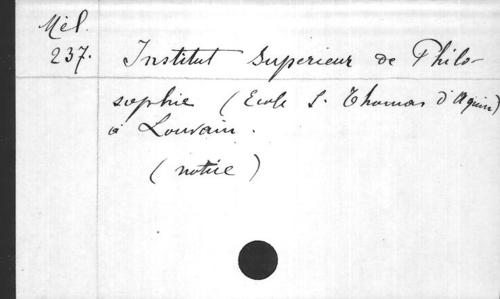 Mél.
237. Institut Superieur de Philo-
sophie (Ecole S. Thomas d'Aquin)
à Louvain.
(notice)